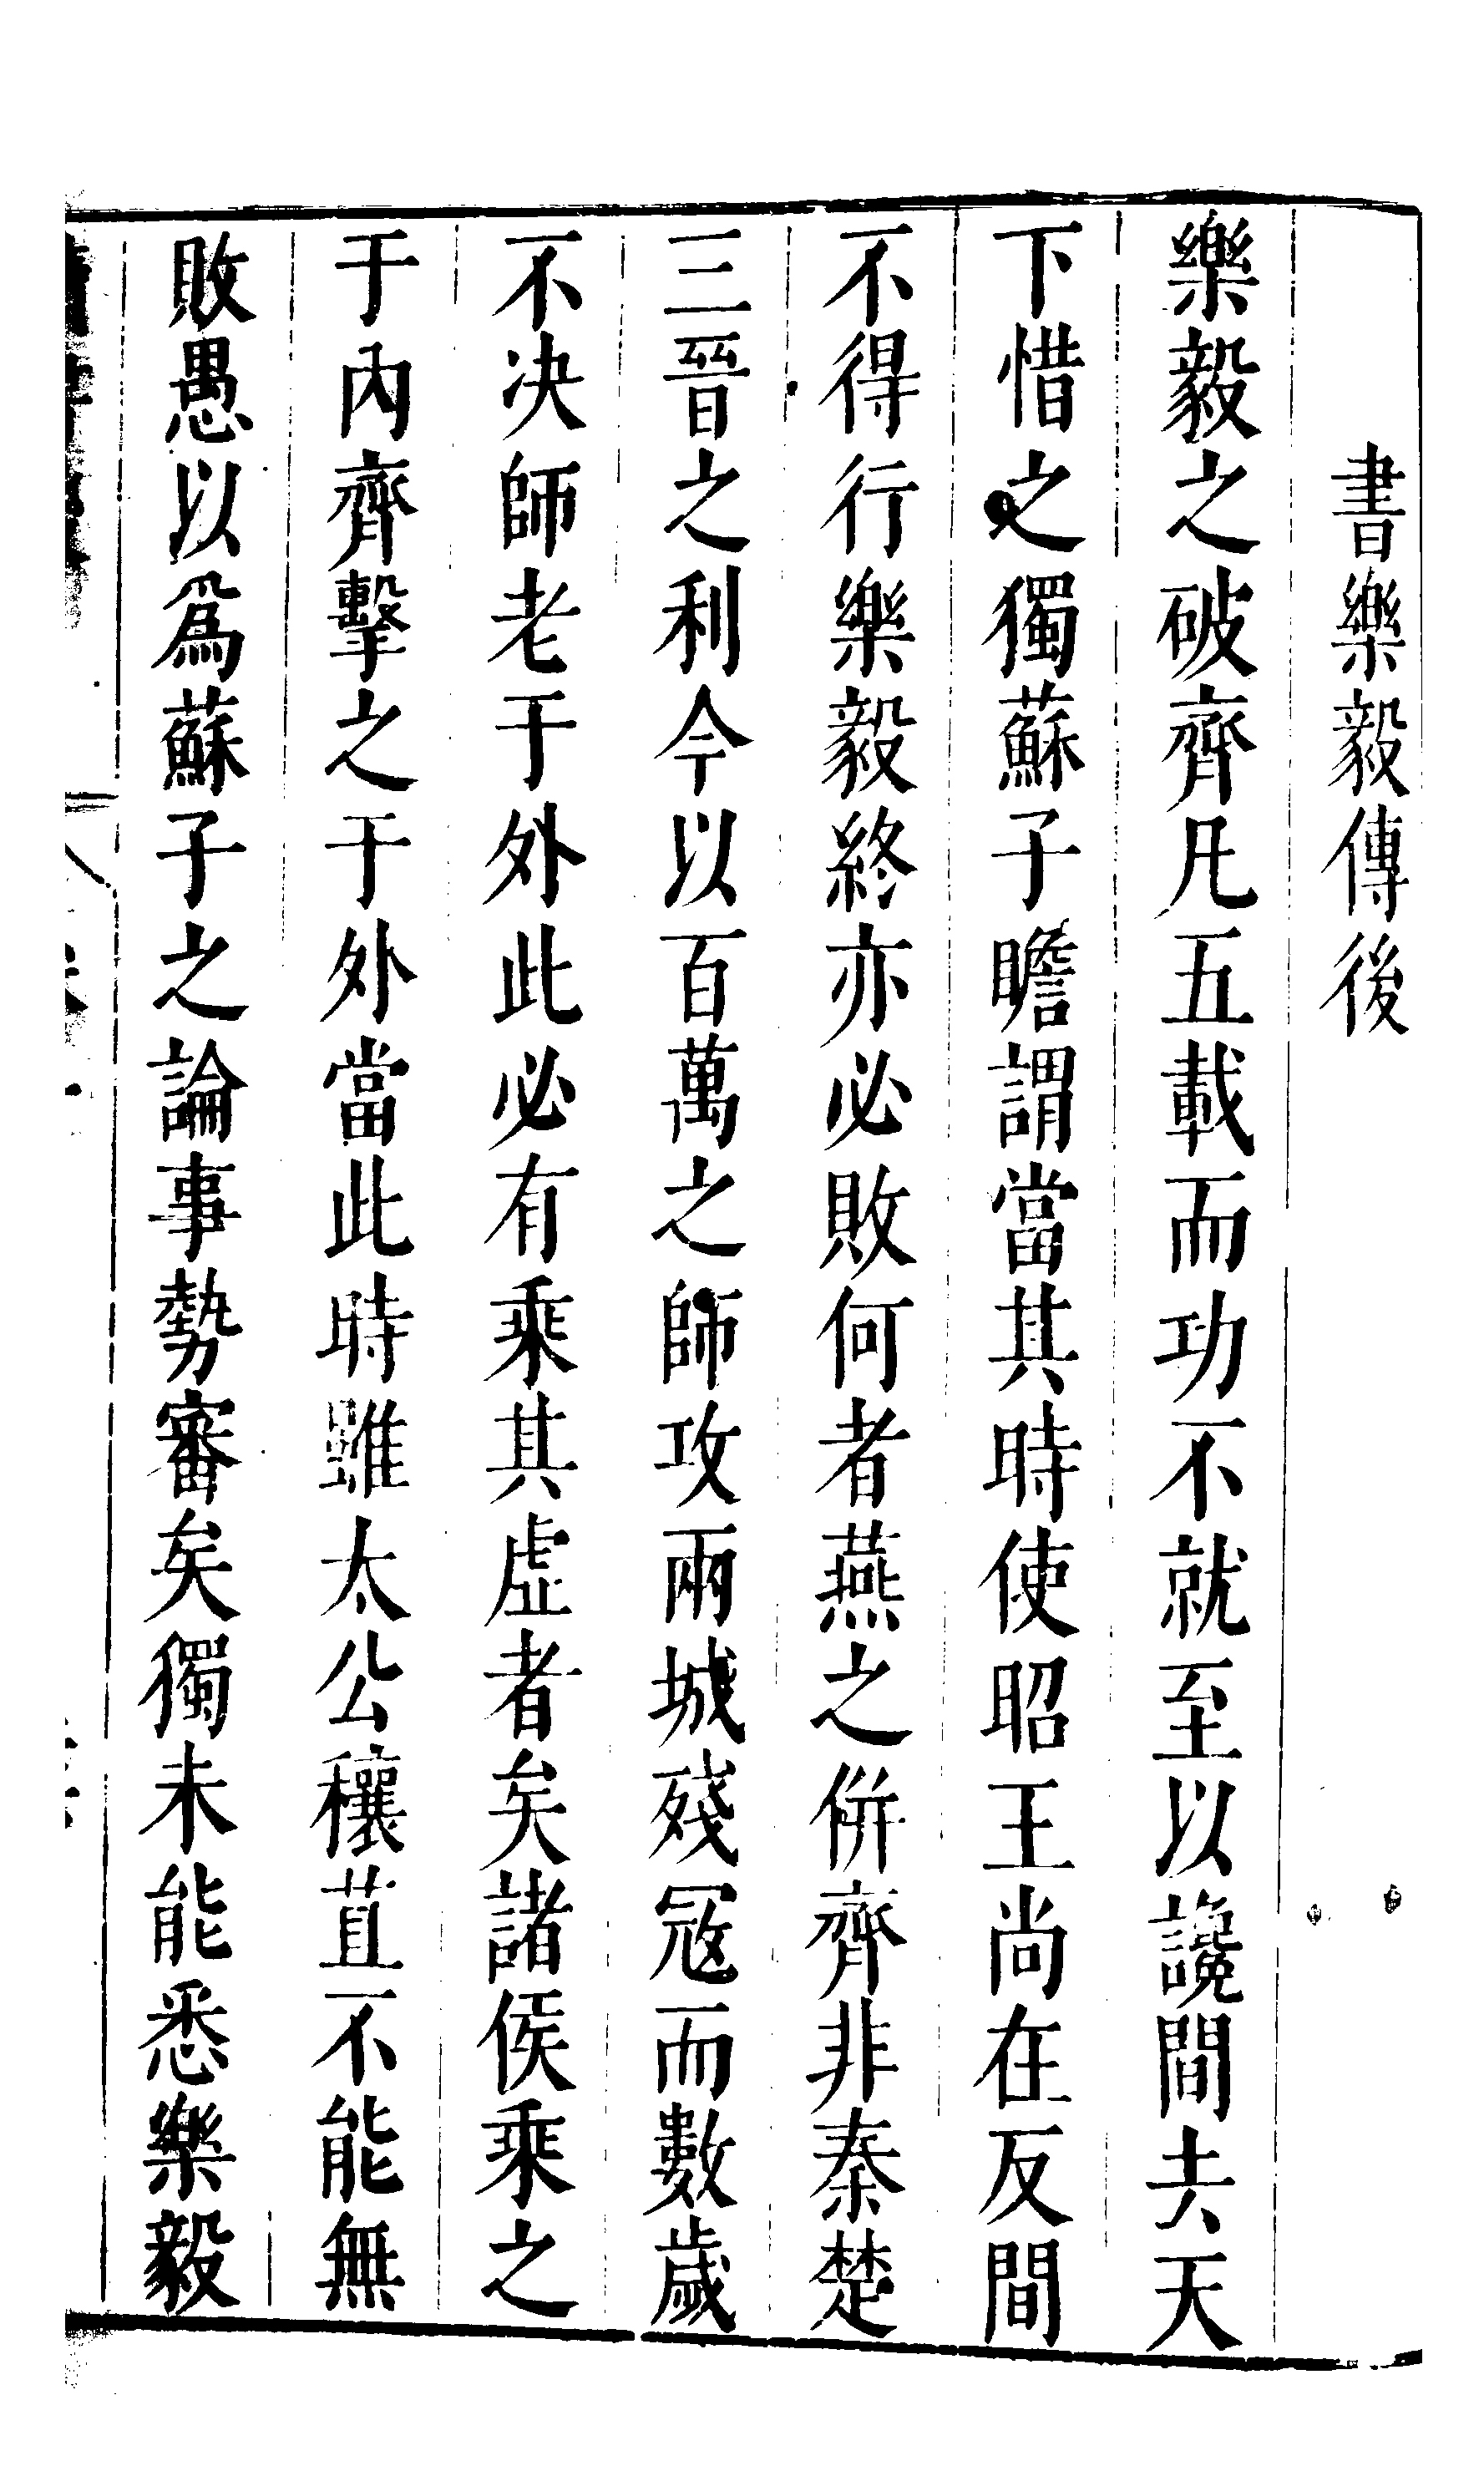 書樂毅傳後
樂毅之破齊凡五載而功不就至以讒間去天
下惜之獨蘇子瞻謂當其時使昭王尚在反間
不得行樂毅終亦必敗何者燕之併齊非秦楚
三晉之利今以百萬之師攻兩城殘冦而數歲
不决師老于外此必有乘其虛者矣諸侯乘之
于內齊擊之于外當此時雖太公穰苴不能無
敗愚以爲蘇子之論事勢審矣獨未能悉樂毅